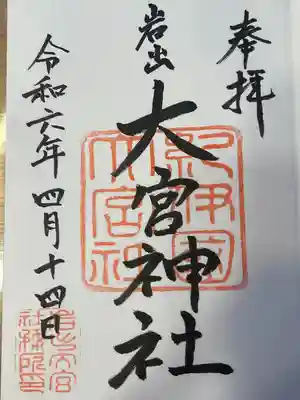 奉拝
岩出
大宮神社
令和六年四月十四日
紀伊國
大宮社
岩出大宮
社務所印